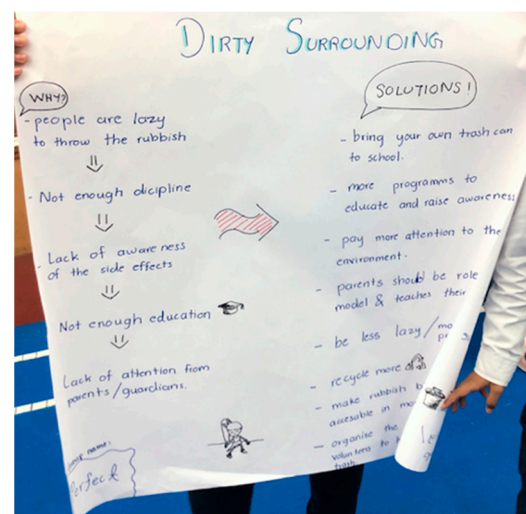 DIRTY SURROUNDING
WHY?
- people are lazy
to throw the rubbish
- Not enough dicipline
- Lack of awareness
of the side effects
Not enough education
Lack of attention from
parents/guardians.
name:
Perfect
SOLUTIONS!
- bring your own trash can
to school.
- more programms to
educate and raise awareness
- pay more attention to the
environment.
- parents should be role
model & teaches their
- be less lazy/mo
- recycle more
- make rubbish b
accesable in mo
- organise the
volunteers to
trash